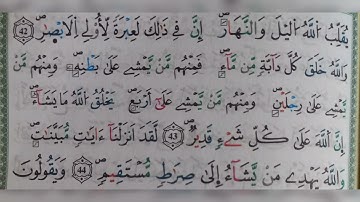 يُقَلِّبُ ٱللَّهُ ٱلَّيْلَ وَٱلنَّهَارَ ۚ إِنَّ فِے ذَٰلِكَ لَعِبْرَةً لِّأُوْلِے ٱلْأَبْصَٰرِ 42
وَٱللَّهُ خَلَقَ كُلَّ دَآبَّةٍ مِّن مَّآءٍ فَمِنْهُم مَّنْ يَّمْشِے عَلَىٰ بَطْنِهِۦ وَمِنْهُم مَّنْ
يَّمْشِے عَلَىٰ رِجْلَيْنِ وَمِنْهُم مَّنْ يَّمْشِے عَلَىٰٓ أَرْبَعٍ يَخْلُقُ ٱللَّهُ مَا يَشَآءُ
إِنَّ ٱللَّهَ عَلَىٰ كُلِّ شَےْءٍ قَدِيرٌ 43 لَّقَدْ أَنزَلْنَآ ءَايَٰتٍ مُّبَيَّنَٰتٍ
وَٱللَّهُ يَهْدِے مَنْ يَّشَآءُ إِلَىٰ صِرَٰطٍ مُّسْتَقِيمٍ 44 وَيَقُولُونَ